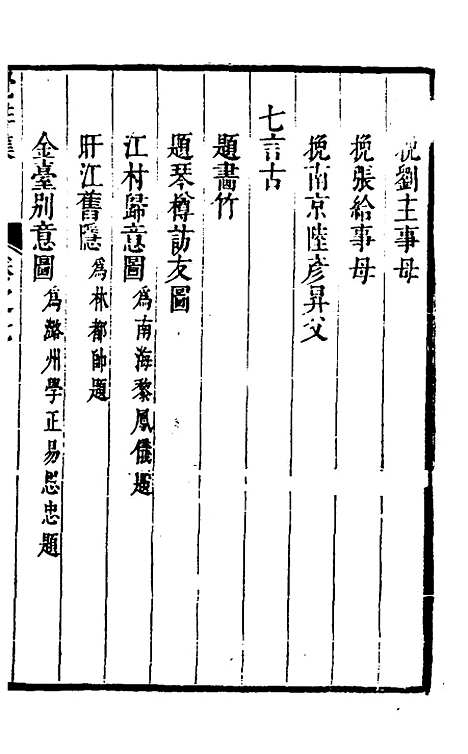 挽劉主事母
挽張給事母
挽南京陸彥昇父
七言古
題畫竹
題琴樽訪友圖
江村歸意圖 為南海黎鳳儀題
盱江舊隱 為林都帥題
金臺別意圖 為潞州學正易思忠題